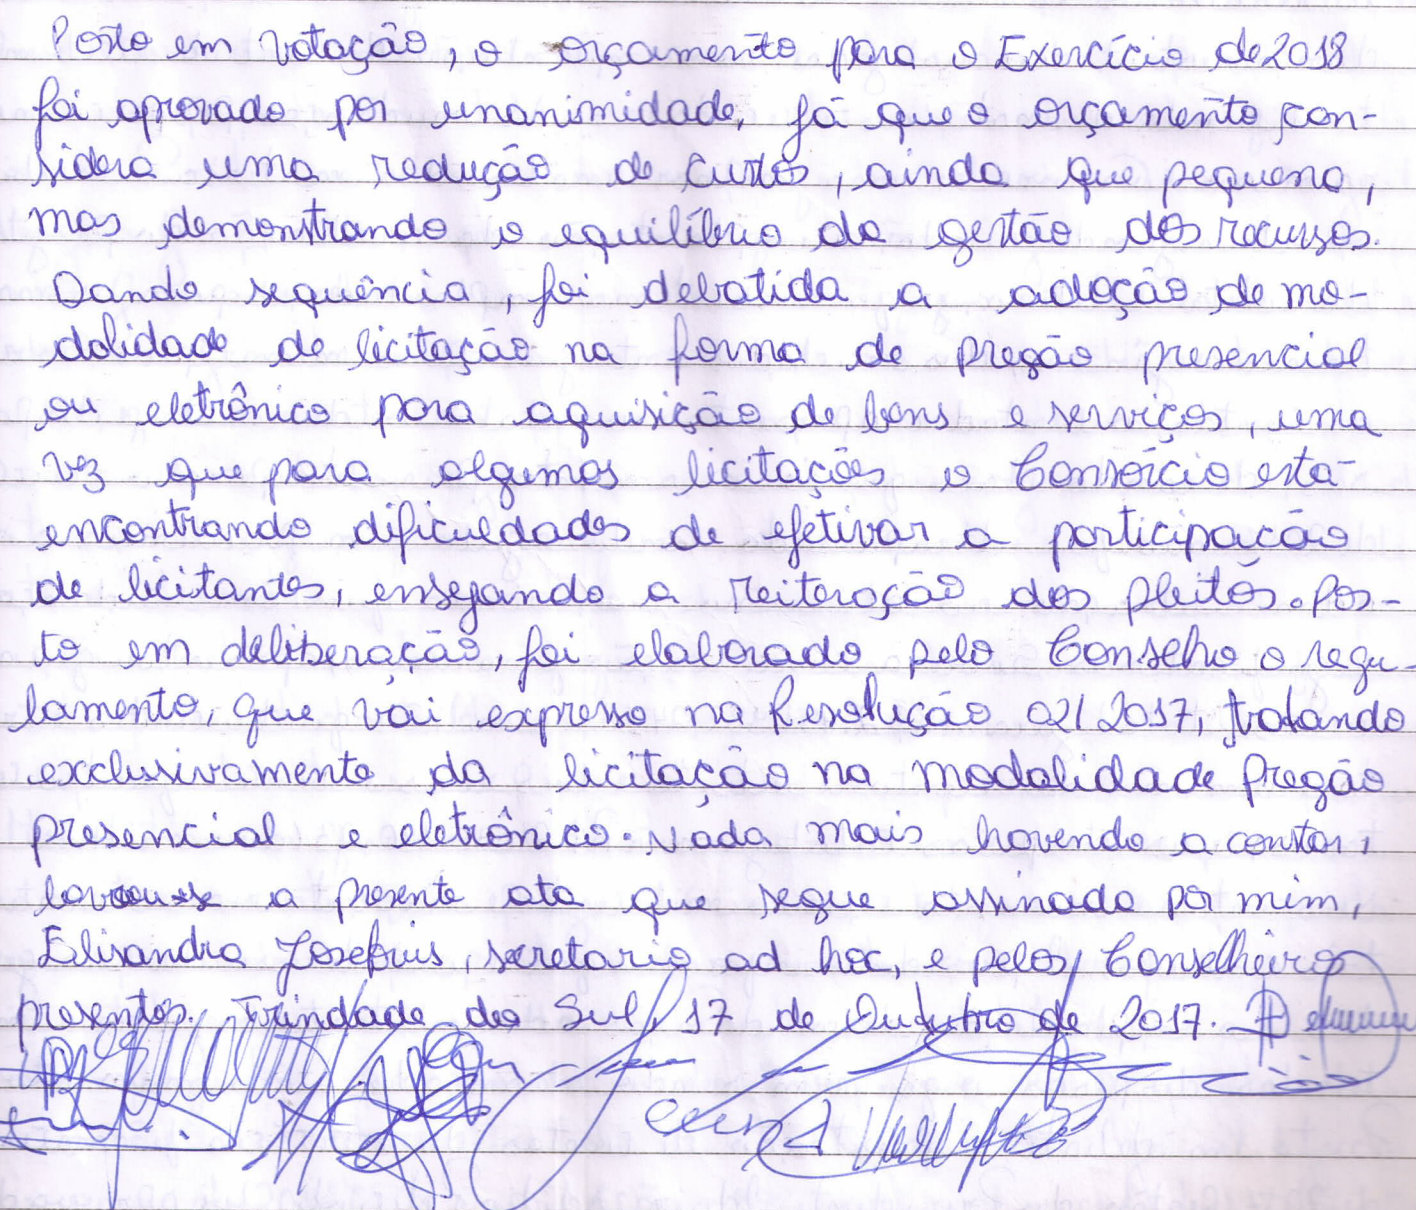 Posto em votação, o orçamento para o Exercício de 2018
foi aprovado por unanimidade, já que o orçamento con-
sidera uma redução de custos, ainda que pequena,
mas demonstrando o equilíbrio da gestão dos recursos.
Dando sequência, foi debatida a adoção de mo-
dalidade de licitação na forma de pregão presencial
ou eletrônico para aquisição de bens e serviços, uma
vez que para algumas licitações o Consórcio está
encontrando dificuldades de efetivar a participação
de licitantes, ensejando a reiteração dos pleitos. Pos-
to em deliberação, foi elaborado pelo Conselho o regu-
lamento, que vai expresso na Resolução 02/2017, tratando
exclusivamente da licitação na modalidade Pregão
presencial e eletrônico. Nada mais havendo a constar,
lavrou-se a presente ata que segue assinada por mim,
Elisandra, secretaria ad hoc, e pelos Conselheiros
presentes. Trindade do Sul, 17 de Outubro de 2017.